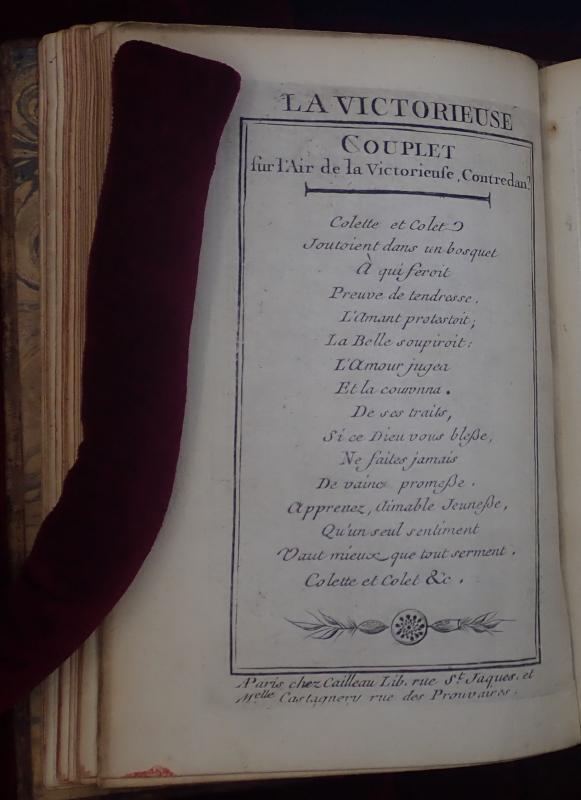 LA VICTORIEUSE
COUPLET
sur l'Air de la Victorieuse, Contredan.
Colette et Colet
Joutoient dans un bosquet
À qui feroit
Preuve de tendresse,
L'Amant protestoit;
La Belle soupiroit:
L'Amour jugea
Et la couronna.
De ses traits,
Si ce Dieu vous bleße,
Ne faites jamais
De vaine promeße.
Apprenez, Aimable Jeuneße,
Qu'un seul sentiment
Vaut mieux que tout serment.
Colette et Colet &c.
A Paris chez Cailleau Lib. rue St. Jaques. et
Melle Castagnery rue des Prouvaires.